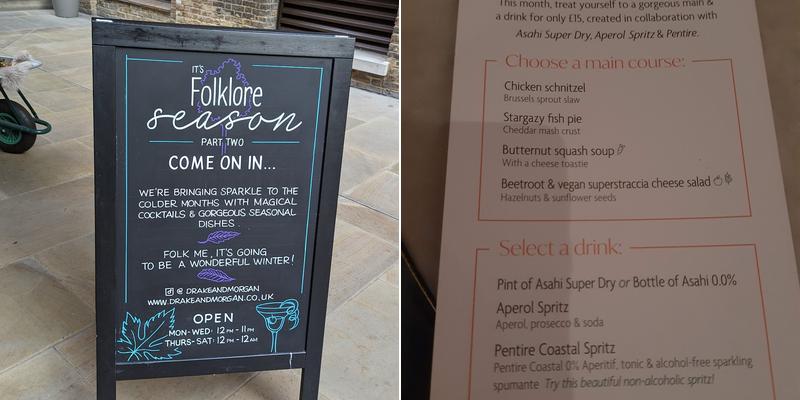 IT'S
Folklore
season
PART TWO
COME ON IN...
WE'RE BRINGING SPARKLE TO THE
COLDER MONTHS WITH MAGICAL
COCKTAILS & GORGEOUS SEASONAL
DISHES.
FOLK ME, IT'S GOING
TO BE A WONDERFUL WINTER!
@ DRAKEANDMORGAN
WWW.DRAKEANDMORGAN.CO.UK
OPEN
MON-WED: 12PM-11PM
THURS-SAT: 12PM-12AM
This month, treat yourself to a gorgeous main &
a drink for only £15, created in collaboration with
Asahi Super Dry, Aperol Spritz & Pentire.
Choose a main course:
Chicken schnitzel
Brussels sprout slaw
Stargazy fish pie
Cheddar mash crust
Butternut squash soup
With a cheese toastie
Beetroot & vegan superstraccia cheese salad
Hazelnuts & sunflower seeds
Select a drink:
Pint of Asahi Super Dry or Bottle of Asahi 0.0%
Aperol Spritz
Aperol, prosecco & soda
Pentire Coastal Spritz
Pentire Coastal 0% Aperitif, tonic & alcohol-free sparkling
spumante Try this beautiful non-alcoholic spritz!